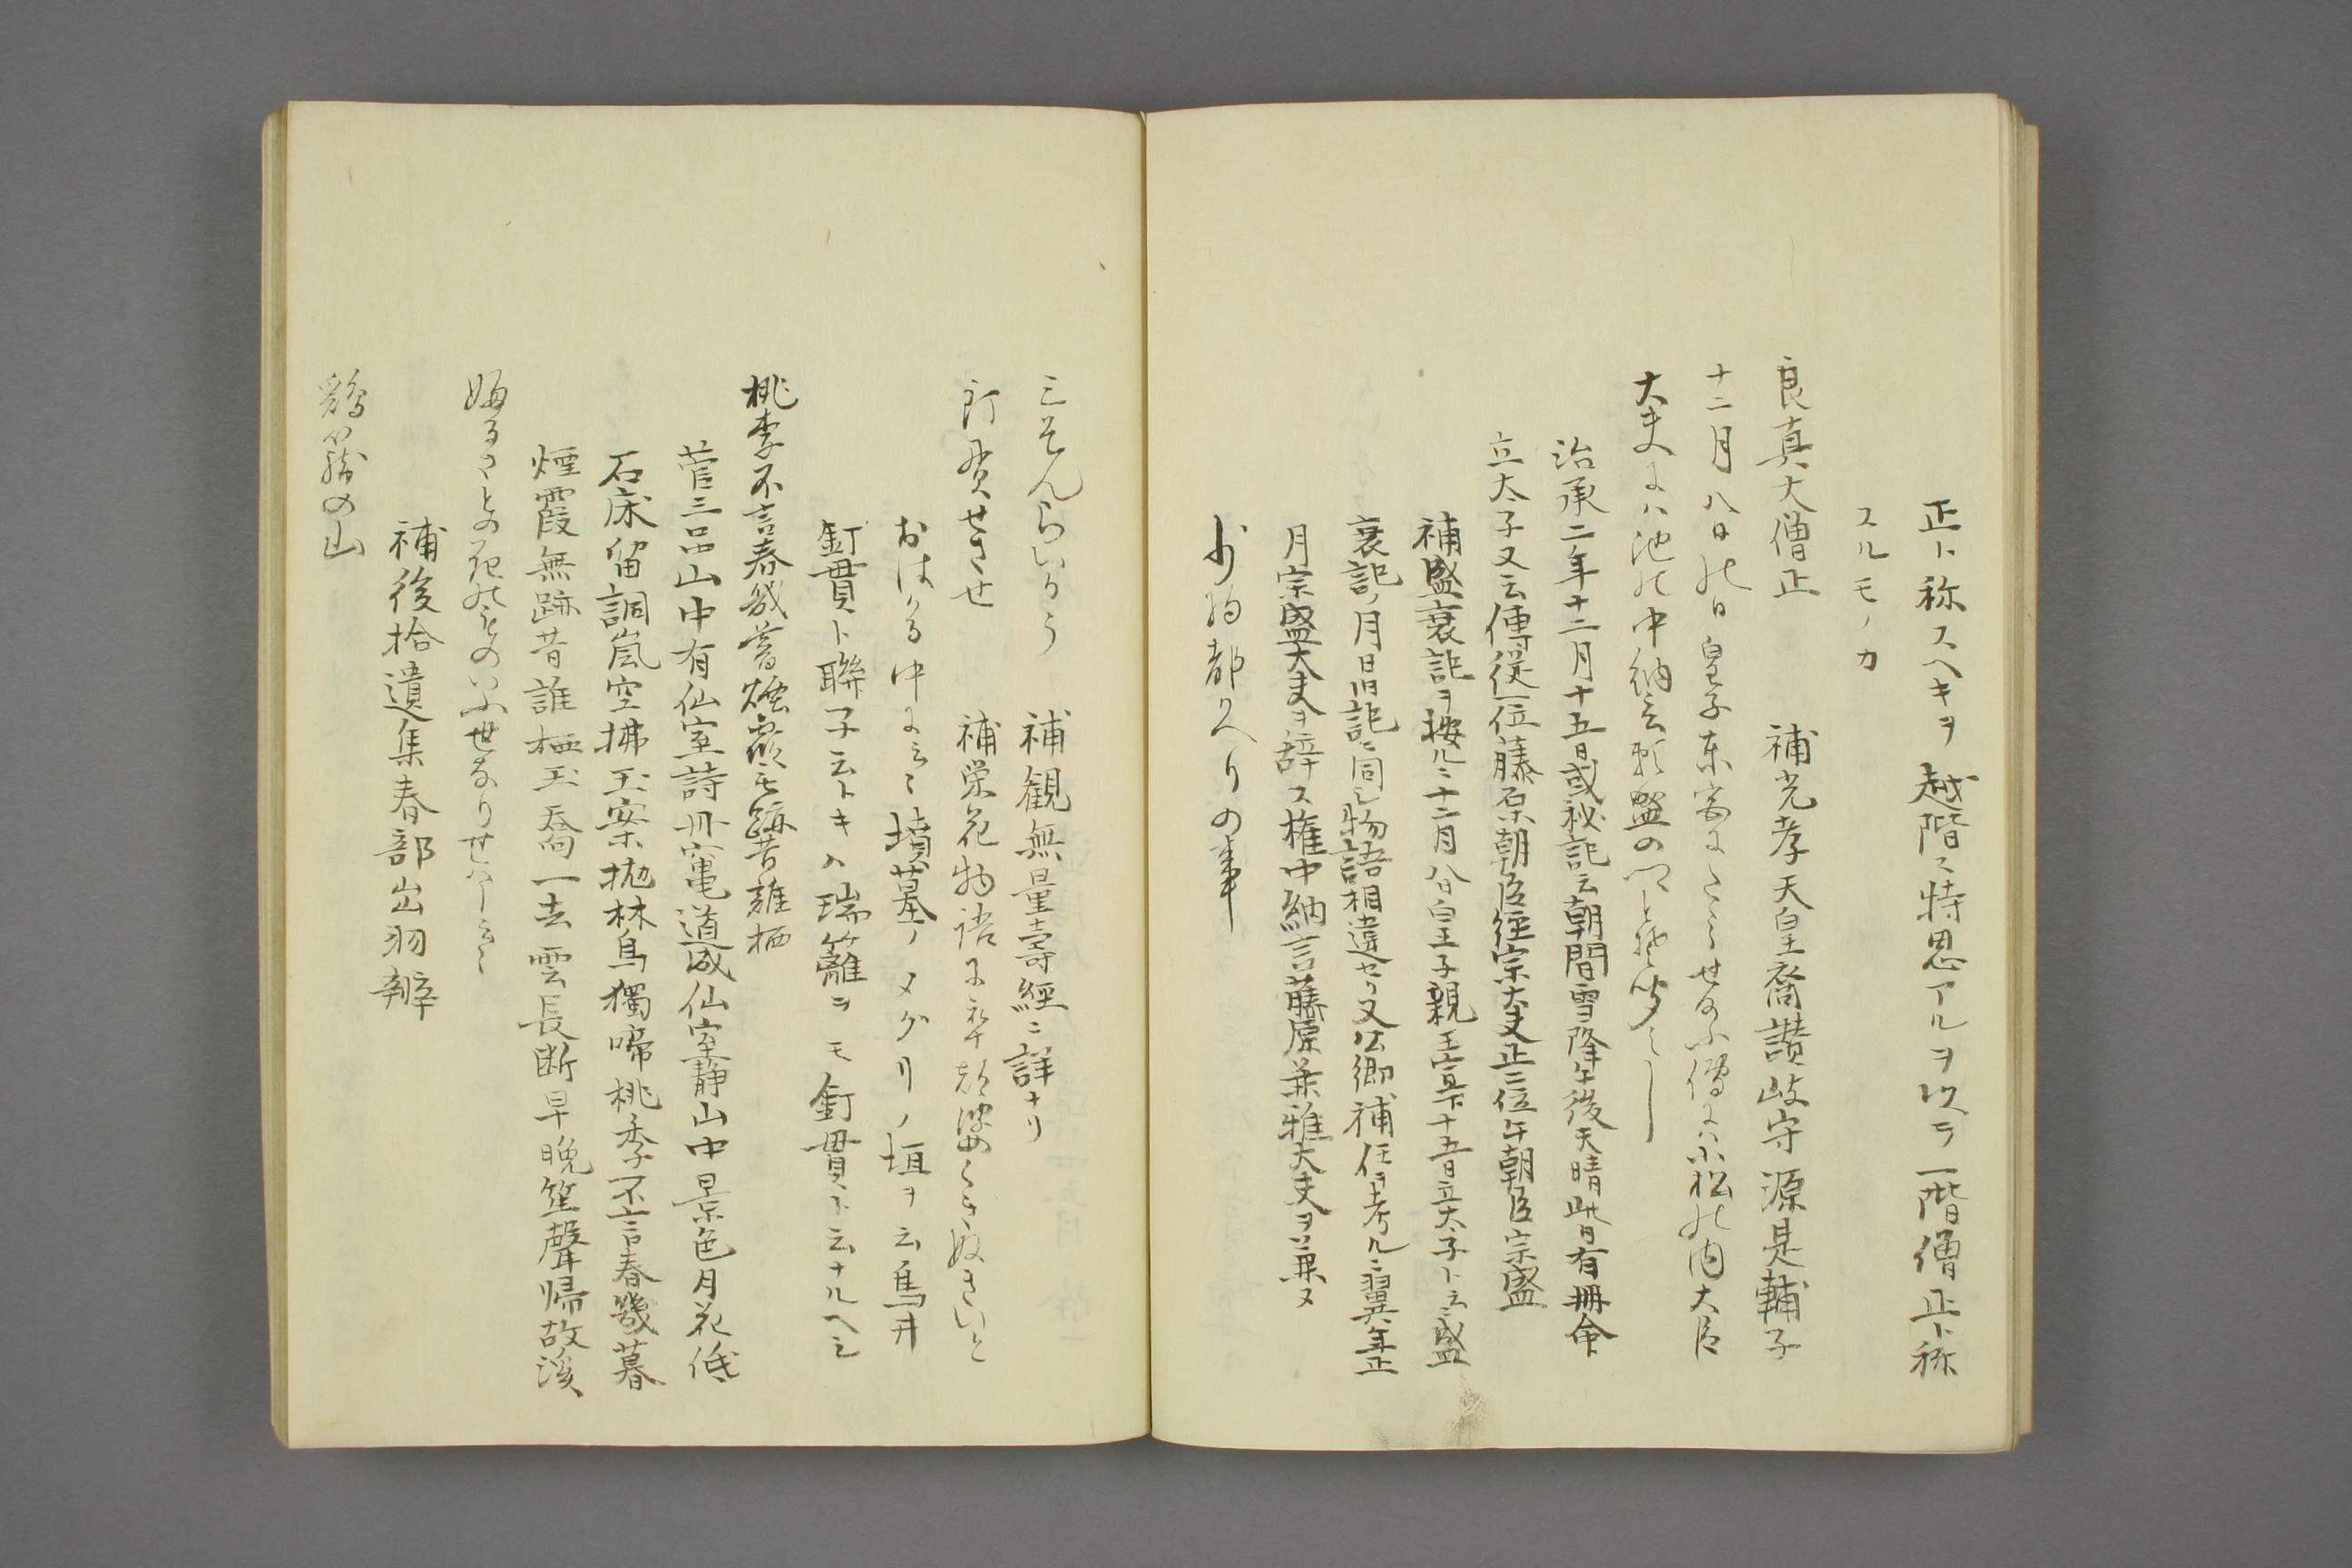 正ト称スヘキヲ越階ニ特恩アルヲ以テ一階僧正ト称
スルモノカ
良真大僧正　補光孝天皇裔讃岐守源是輔子
十二月八日の日皇子東宮にたゝせ給ふ傅には小松の内大臣
大夫には池の中納言頼盛の卿とそ聞えし
治承二年十二月十五日或秘記云朝間雪降午後天晴此日有冊命
立太子又云傅従一位藤原朝臣経宗大夫正二位平朝臣宗盛
補盛衰記ヲ按ルニ十二月八日皇子親王宣下十五日立太子ト云盛
衰記ノ月日旧記ニ同シ物語相違セリ又公卿補任ヲ考ルニ翼年正
月宗盛大夫ヲ辞ス権中納言藤原兼雅大夫ヲ兼ヌ
少将都かへりの事
三そんらいかう　補観無量寿経ニ詳ナリ
釘貫せさせ　補栄花物語に卒都婆くきぬきいと
おほかる中に云々墳墓ノメグリノ垣ヲ云鳥井
釘貫ト聯子云トキハ瑞籬ヲモ釘貫ト云ナルヘシ
桃李不言春幾暮煙霞無跡昔誰栖
菅三品山中有仙室詩丹竃道成仙室静山中景色月花低
石床留洞嵐空拂玉案抛林鳥獨啼桃李不言春幾暮
煙霞無跡昔誰栖王喬一去雲長断早晩笙聲帰故溪
ふるさとの花のものいふ世なりせは云々
補後拾遺集春部出羽辨
鶏籠の山